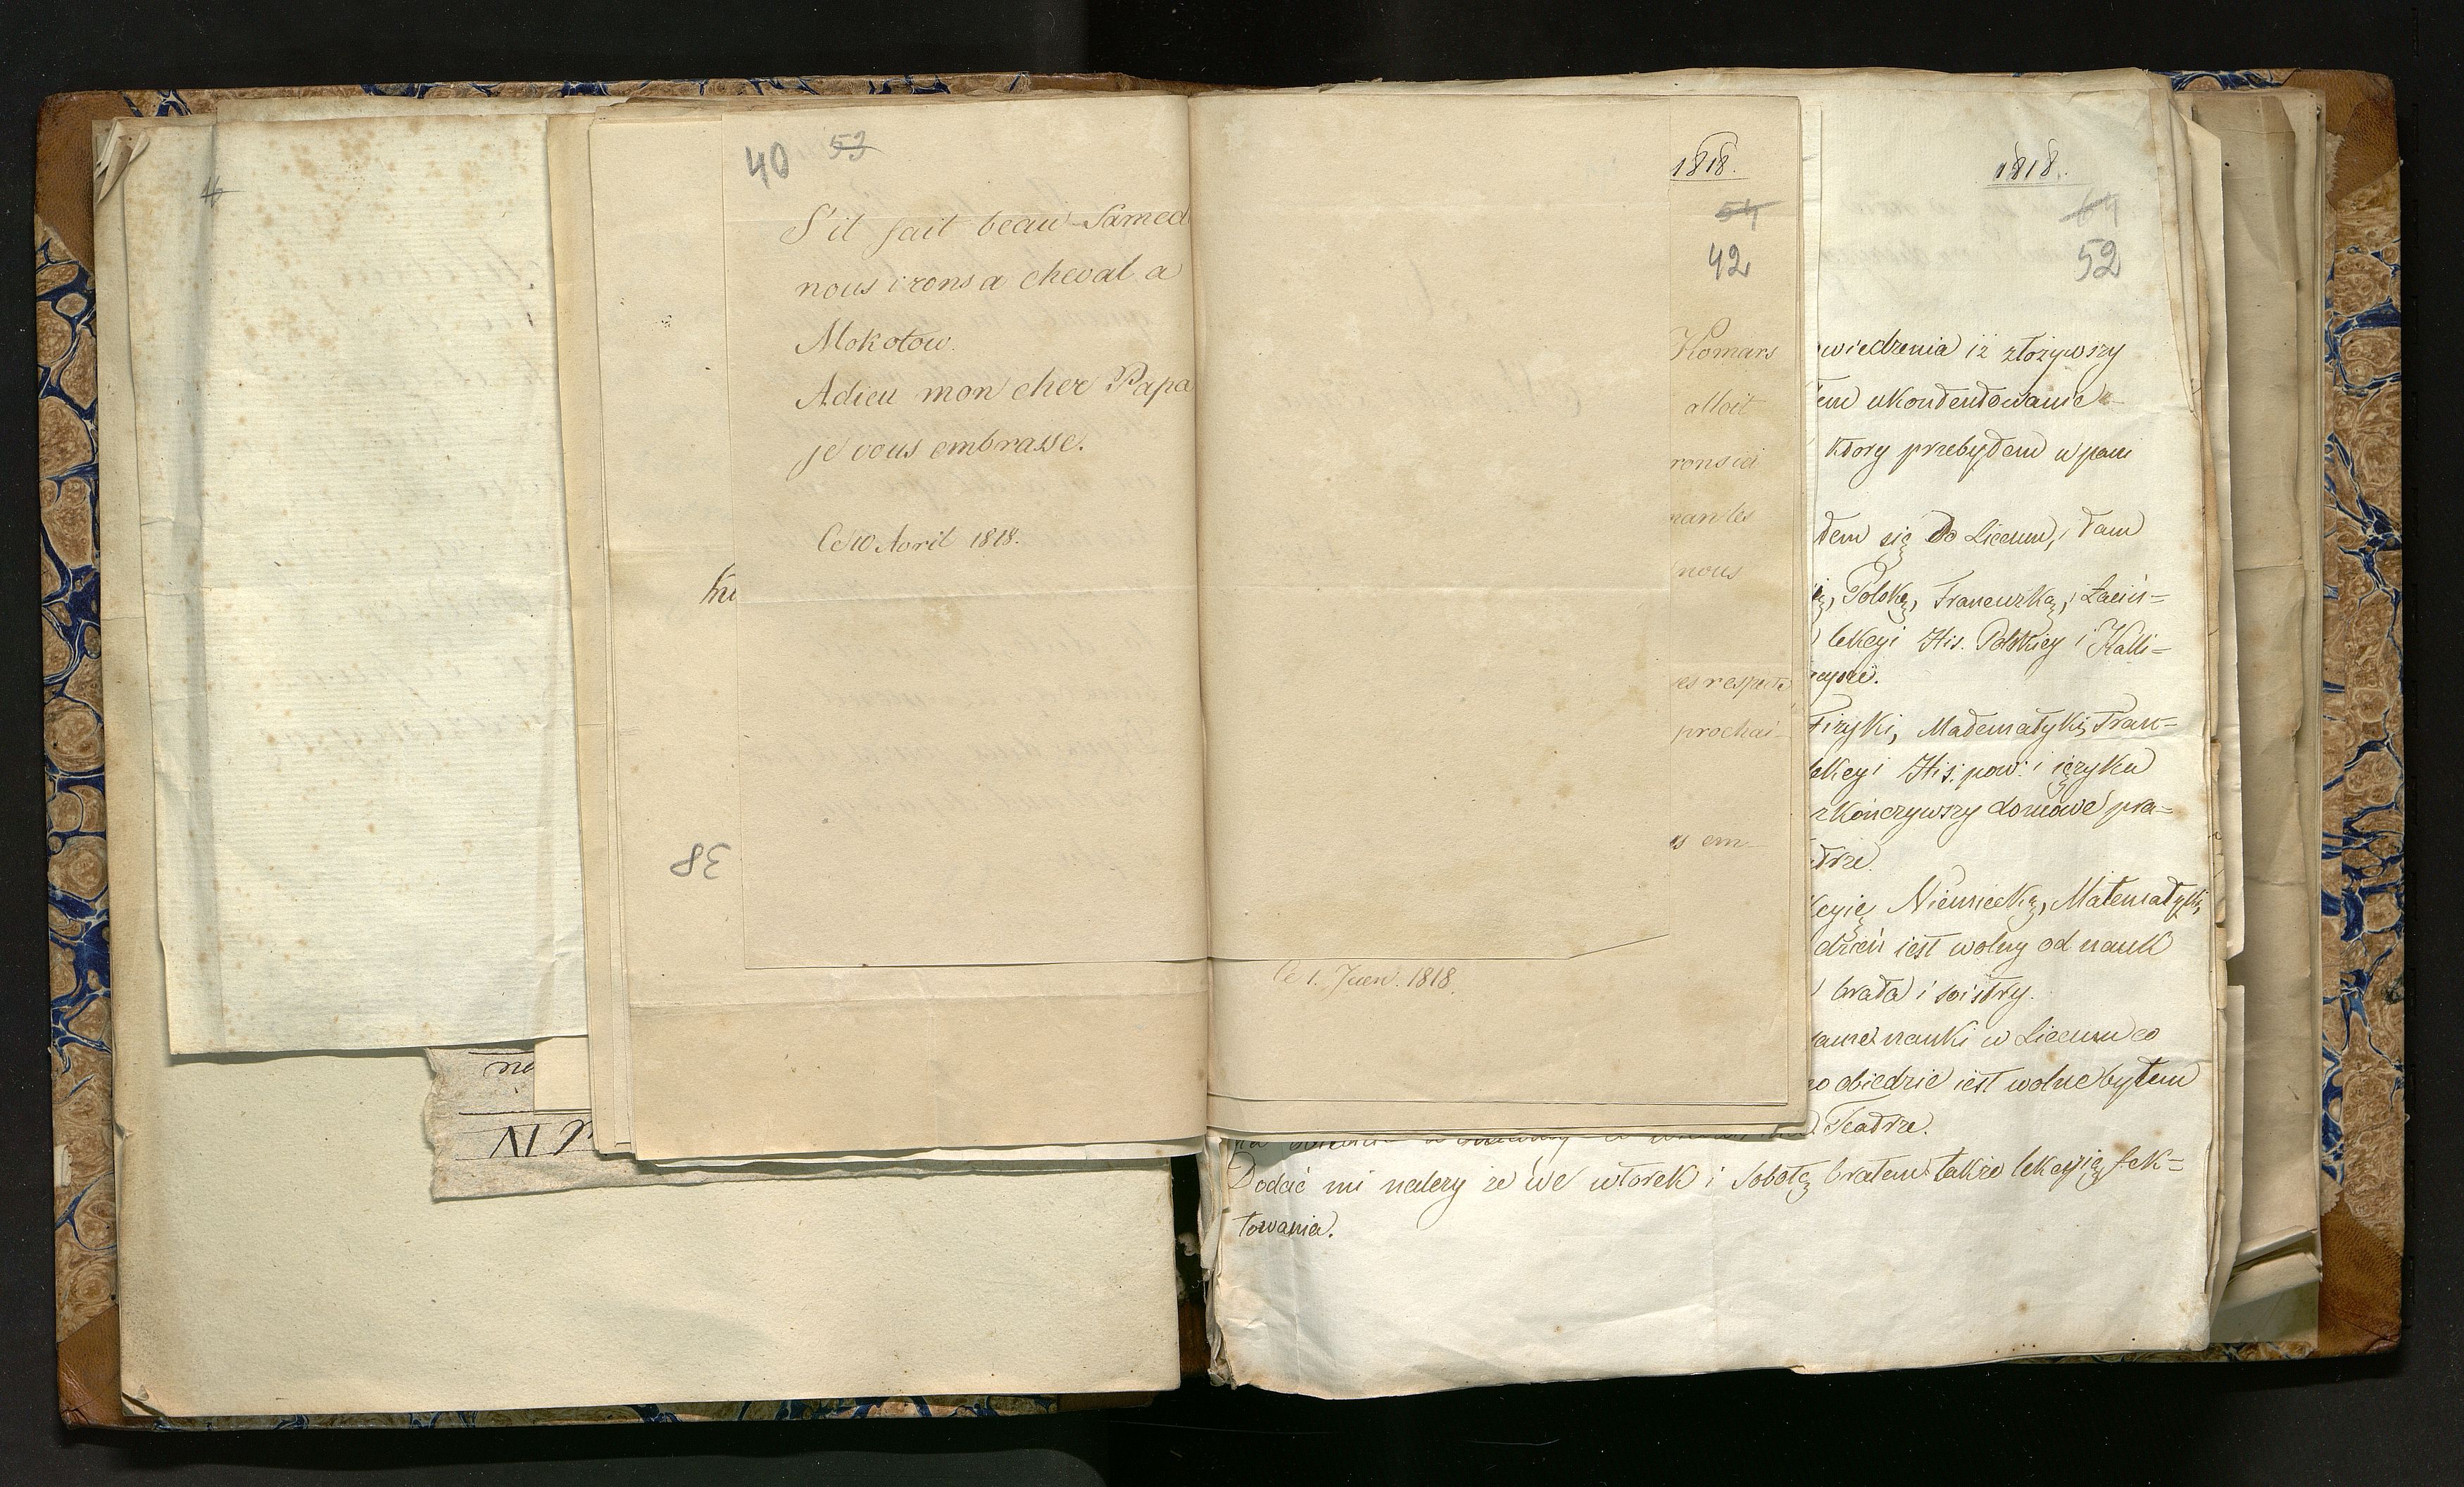 40 53
S'il fait beau Samed
nous irons a cheval a
Mokotow.
Adieu mon cher Papa
je vous embrasse.
Ce 10 Avril 1818.
38
1818.
54
42
Komars
alloit
rons ici
nous
es respects
prochai-
s em-
Ce 1. Juen. 1818.
1818.
64
52
wiedzenia iż złożywszy
tem ukontentowanie
ktory przebyłem w pani
łem się do Liceum, i tam
Polską, Francuzką, i Łaciń=
lekcyi His. Polskiey i Kalli=
Fizyki, Matematyki, Fran=
lekcyi His. pow. i ięzyka
zkończywszy domowe pra=
trze.
kcyię Niemiecką, Matematyki,
dzień iest wolny od nauk
brata i siostry.
same nauki w Liceum co
po obiedzie iest wolne byłem
Teatrze.
Dodać mi należy że we wtorek i Sobotę brałem także lekcyię fek=
towania.